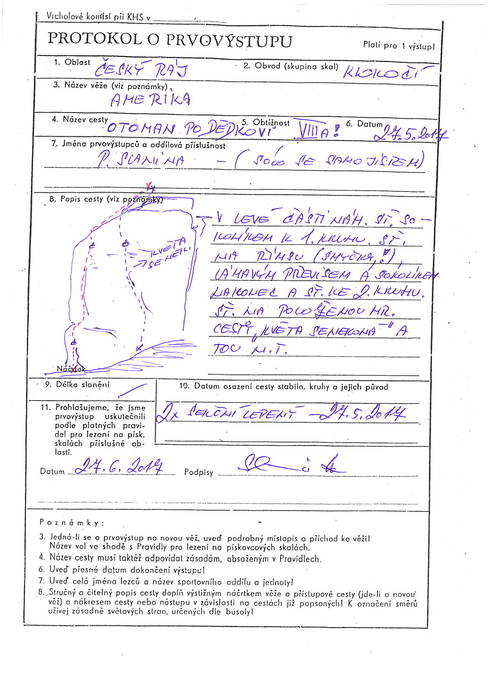 Vrcholové komisi při KHS v
PROTOKOL O PRVOVÝSTUPU
Platí pro 1 výstup!
1. Oblast ČESKÝ RÁJ
2. Obvod (skupina skal) KLOKOČÍ
3. Název věže (viz poznámky)
AMERIKA
4. Název cesty OTOMAN PO DĚDKOVI
5. Obtížnost VIIIA!
6. Datum 27.5.2017
7. Jména prvovýstupců a oddílová příslušnost
P. SLANINA - (SÓLO SE SAMOJIŠTEM)
8. Popis cesty (viz poznámky)
V LEVÉ ČÁSTI NÁH. SŤ. SO-
KOLÍKEM K 1. KRUHU. SŤ.
NA ŘÍMSU (SMYČKA,!)
LÁMAVÝM PŘEVISEM A SOKOLÍKEM
NAKONEC A SŤ. KE 2. KRUHU.
SŤ. NA POLOŽENOU HR.
CESTY "KVĚTA SENEKONA" A
TOU N.T.
KVĚTA
Náčrtek
9. Délka slanění
10. Datum osazení cesty stabiln. kruhy a jejich původ
2x SEKČNÍ LEPENÝ - 27.5.2017
11. Prohlašujeme, že jsme
prvovýstup uskutečnili
podle platných pravi-
del pro lezení na písk.
skalách příslušné ob-
lasti.
Datum 27.6.2017 Podpisy
Poznámky:
3. Jedná-li se o prvovýstup na novou věž, uveď podrobný místopis a příchod ke věži!
Název vol ve shodě s Pravidly pro lezení na pískovcových skalách.
4. Název cesty musí taktéž odpovídat zásadám, obsaženým v Pravidlech.
6. Uveď přesné datum dokončení výstupu!
7. Uveď celá jména lezců a název sportovního oddílu a jednoty!
8. Stručný a čitelný popis cesty doplň výstižným náčrtkem věže a přístupové cesty (jde-li o novou
věž) a nákresem cesty nebo nástupu v závislosti na cestách již popsaných! K označení směrů
užívej zásadně světových stran, určených dle busoly!